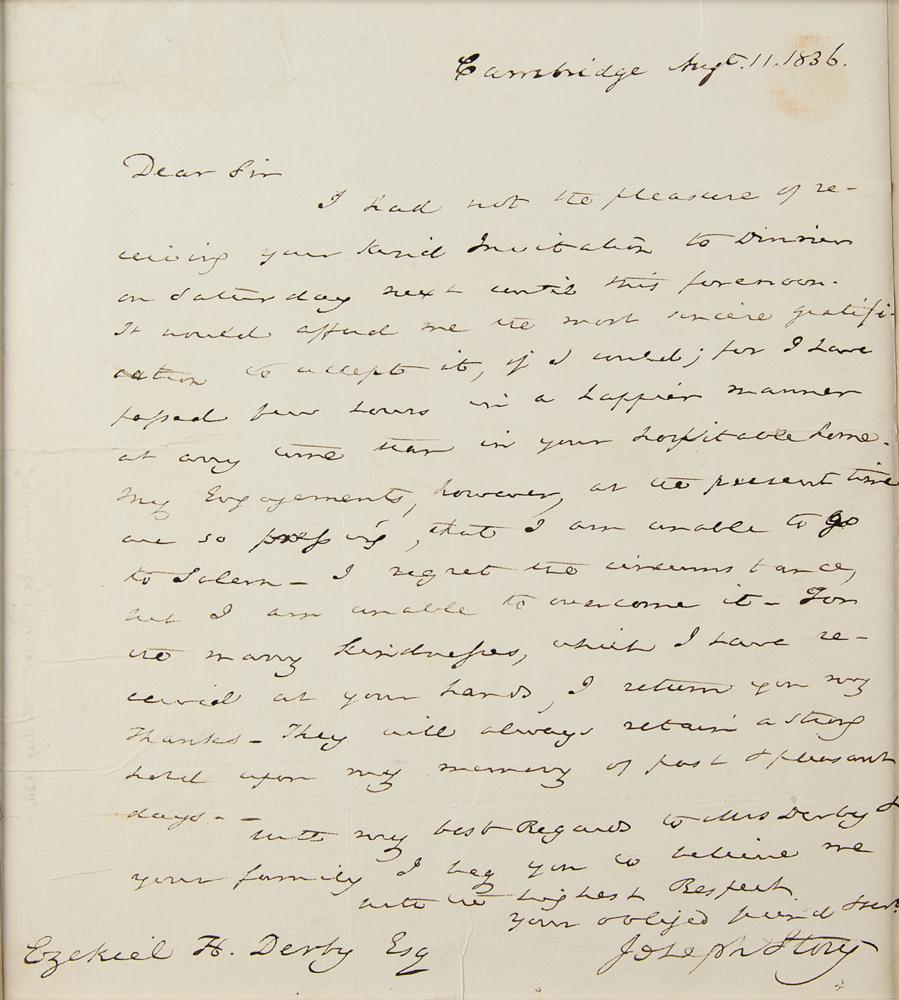 Cambridge Augt. 11. 1836.
Dear Sir
I had not the pleasure of re-
ceiving your kind Invitation to Dinner
on Saturday next until this forenoon.
It would afford me the most sincere gratifi-
cation to accept it, if I could; for I have
passed few hours in a happier manner
at any time than in your hospitable home.
My Engagements, however, at the present time
are so pressing, that I am unable to go
to Salem - I regret the circumstance,
but I am unable to overcome it - For
the many kindnesses, which I have re-
ceived at your hands, I return you my
thanks - They will always retain a strong
hold upon my memory of past & pleasant
days - -
With my best Regards to Mrs Derby &
your family I beg you to believe me
with the highest Respect
your obliged friend & servt
Joseph Story
Ezekiel H. Derby Esq